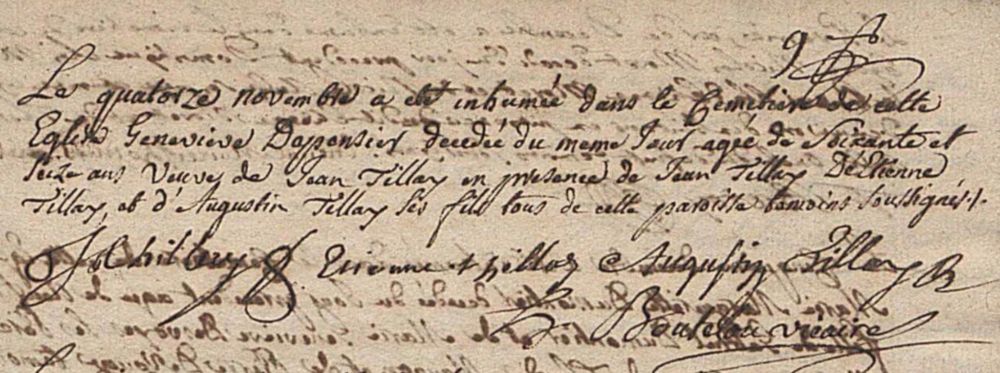 9
Le quatorze novembre a eté inhumée dans le Cemetiere de cette
Eglise Genevieve Depponsier decedée du meme Jour agée de Soixante et
seize ans veuve de Jean Tillay en presence de Jean Tillay D'Etienne
Tillay, et d'Augustin Tillay ses fils tous de cette paroisse temoins soussignés./.
Etienne thillay Augustin Tillay
vicaire